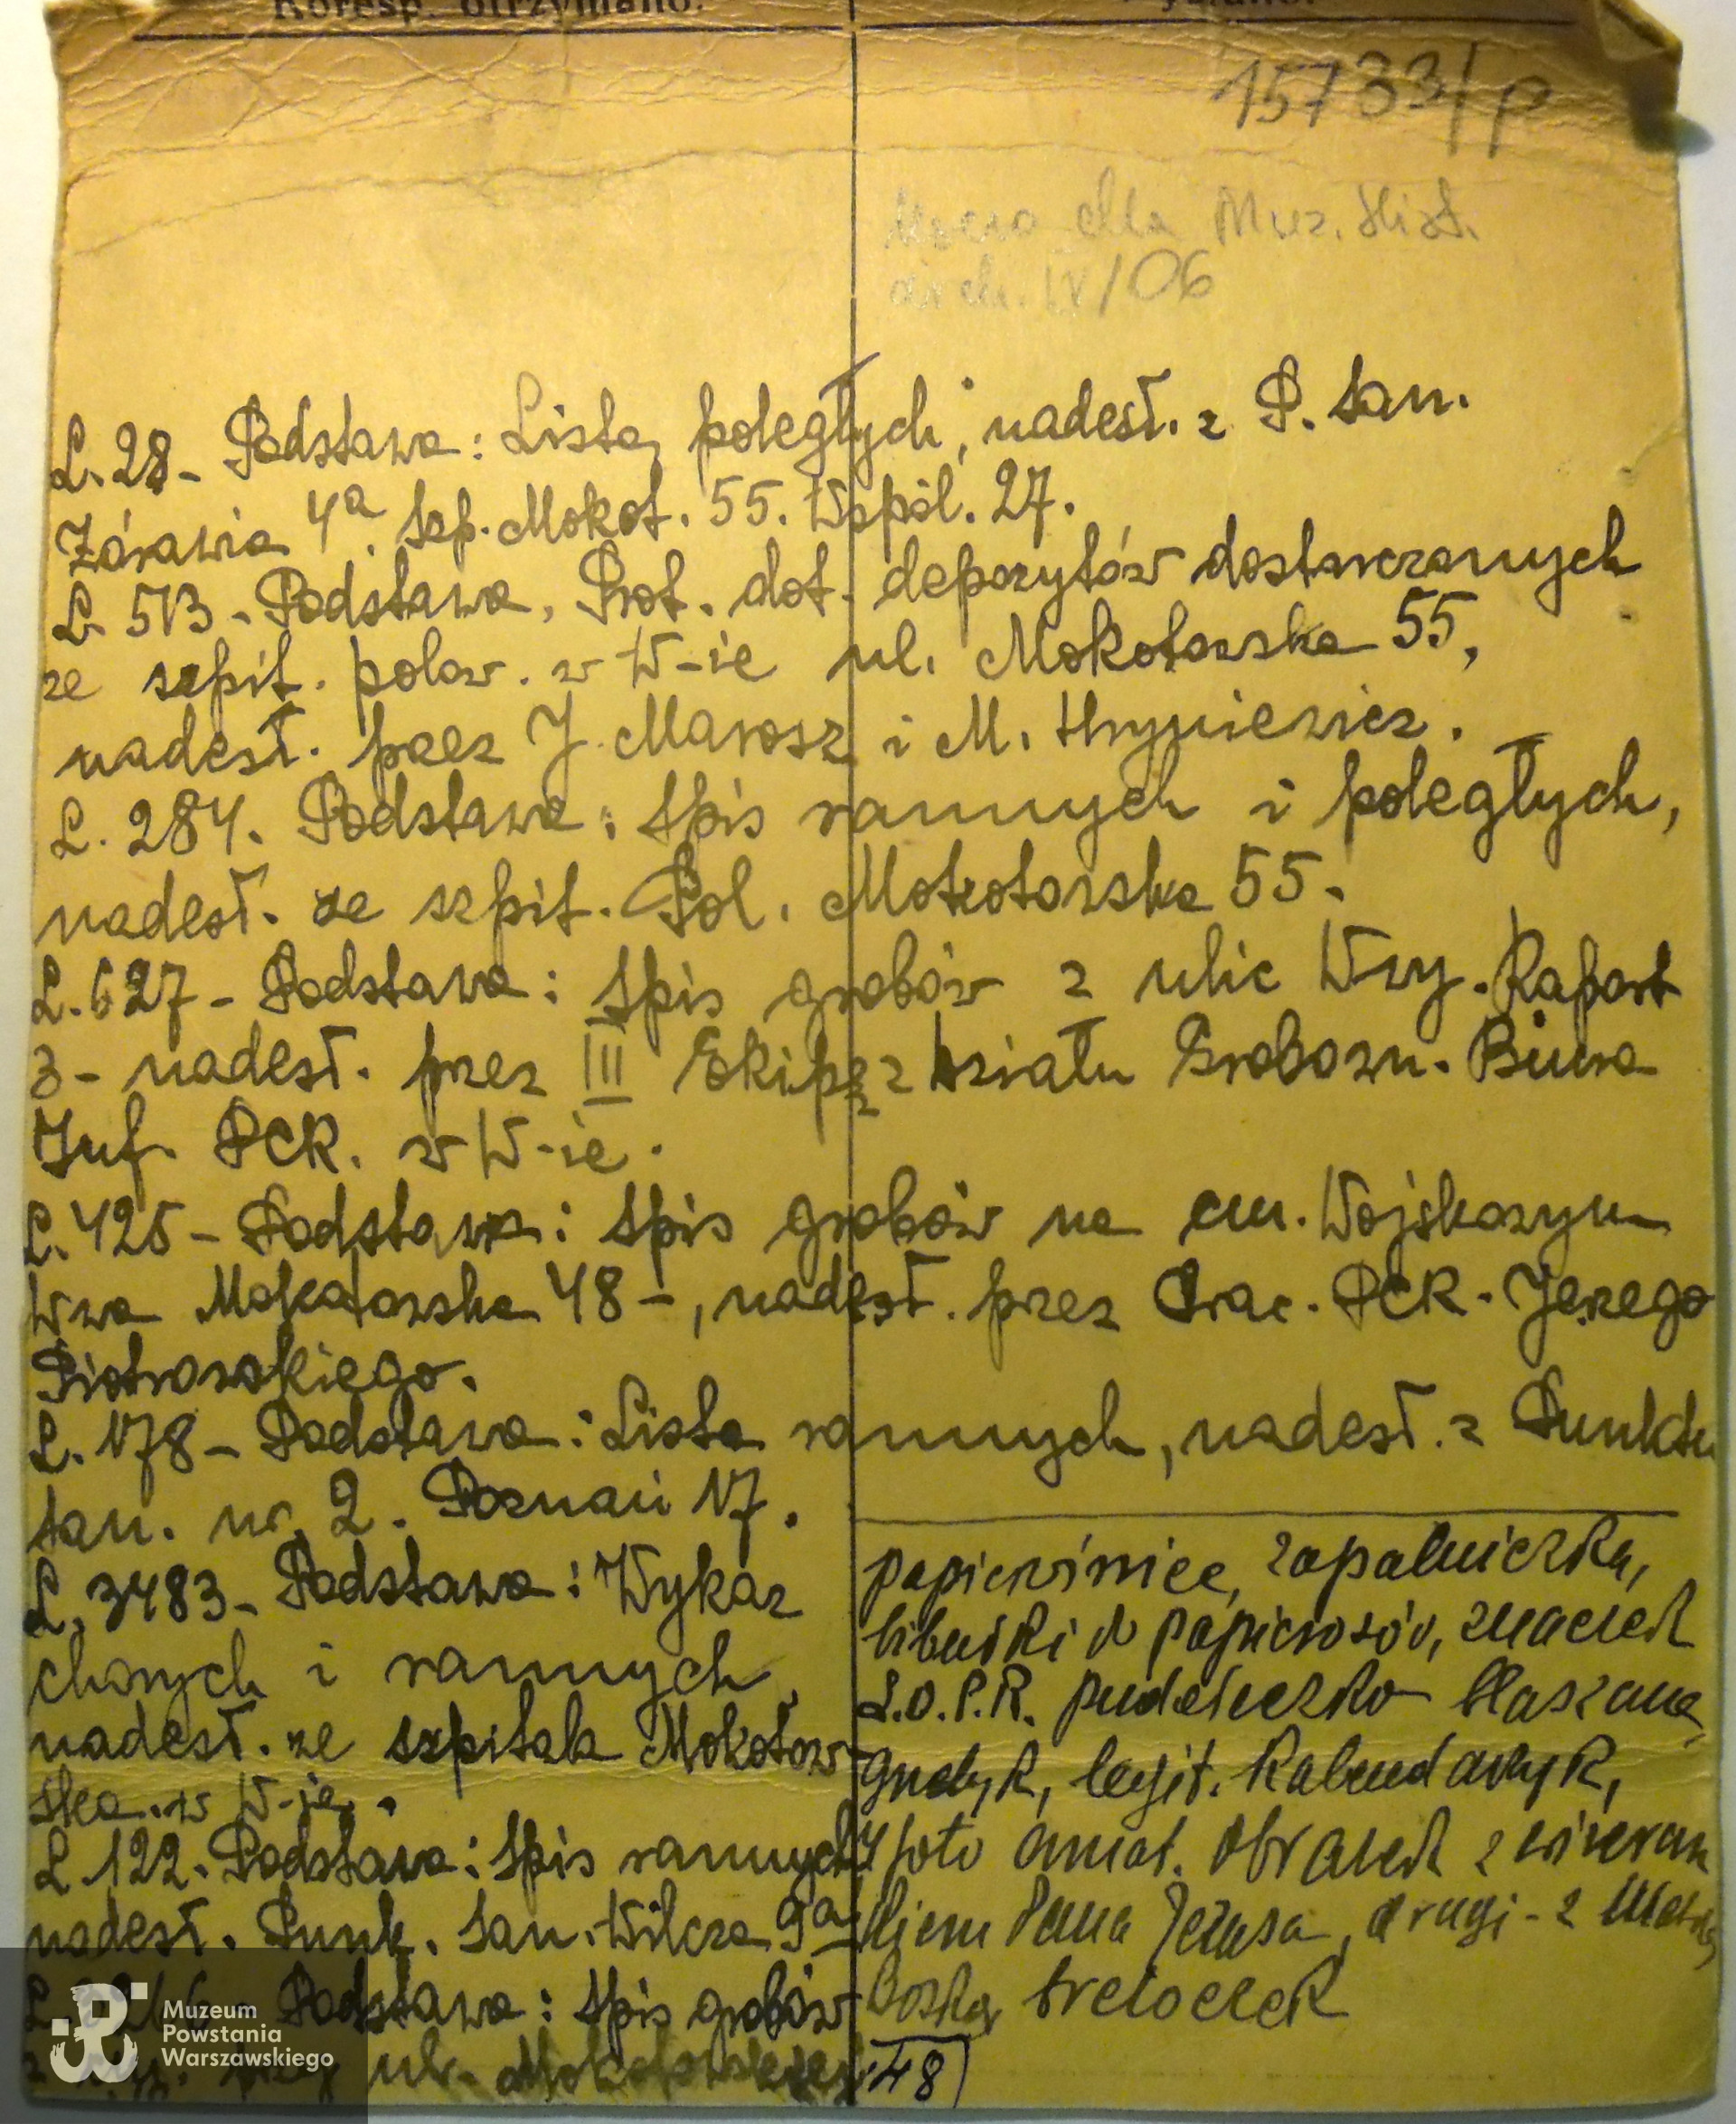 Koresp. otrzymano.
15733/p
dla Muz. Hist.
IV/06
L. 28 - Podstawa: Lista poległych, nadesł. z P. San.
Żórawia 4a. Szp. Mokot. 55. Wspól. 27.
L. 513 - Podstawa, Prot. dot. depozytów dostarczanych
ze szpit. polow. w W-ie ul. Mokotowska 55,
nadesł. przez J. Marosz i M. Hryniewicz.
L. 284. Podstawa: Spis rannych i poległych,
nadesł. ze szpit. Pol. Mokotowska 55.
L. 627 - Podstawa: Spis grobów z ulic Wwy. Raport
3 - nadesł. przez III Ekipę z Działu Grobown. Biura
Inf. PCK. w W-ie.
L. 425 - Podstawa: Spis grobów na cm. Wojskowym
Wwa Mokotowska 48 -, nadesł. przez Prac. PCK. Jerzego
Piotrowskiego.
L. 178 - Podstawa: Lista rannych, nadesł. z Punktu
San. nr. 2. Poznań 17.
L. 3483 - Podstawa: Wykaz
chorych i rannych,
nadesł. ze szpitala Mokotow-
ska. w W-ie.
L. 122. Podstawa: Spis rannych
nadesł. Punk. San. Wilcza 9a
Podstawa: Spis grobów
ul. Mokotowskiej
48
papierośnice, zapalniczka,
bibułki do papierosów, znaczek
L.O.P.P. pudełeczko blaszane,
guzyk, legit. kalendarzyk,
4 foto amat. Obrazek z wizerun
kiem Pana Jezusa, drugi - z Matką
Boską breloczek
Muzeum
Powstania
Warszawskiego